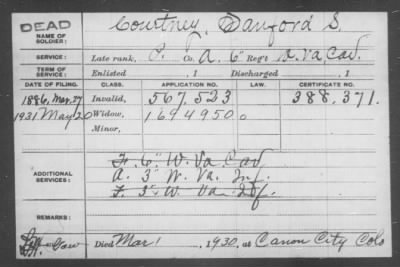 DEAD
NAME OF SOLDIER: Courtney, Sanford S.
SERVICE: Late rank, P. Co. A. 6" Reg't W. Va Cav.
TERM OF SERVICE: Enlisted , 1 Discharged , 1
DATE OF FILING. CLASS. APPLICATION NO. LAW. CERTIFICATE NO.
1886, Mar. 27 Invalid, 567.523 388.371.
1931 May 20 Widow, 1694950
Minor,
ADDITIONAL SERVICES:
F. 6" W. Va Cav
A. 3" W. Va. Inf.
F. 3" W. Va Inf.
REMARKS:
Died Mar 1, 1930, at Canon City Colo